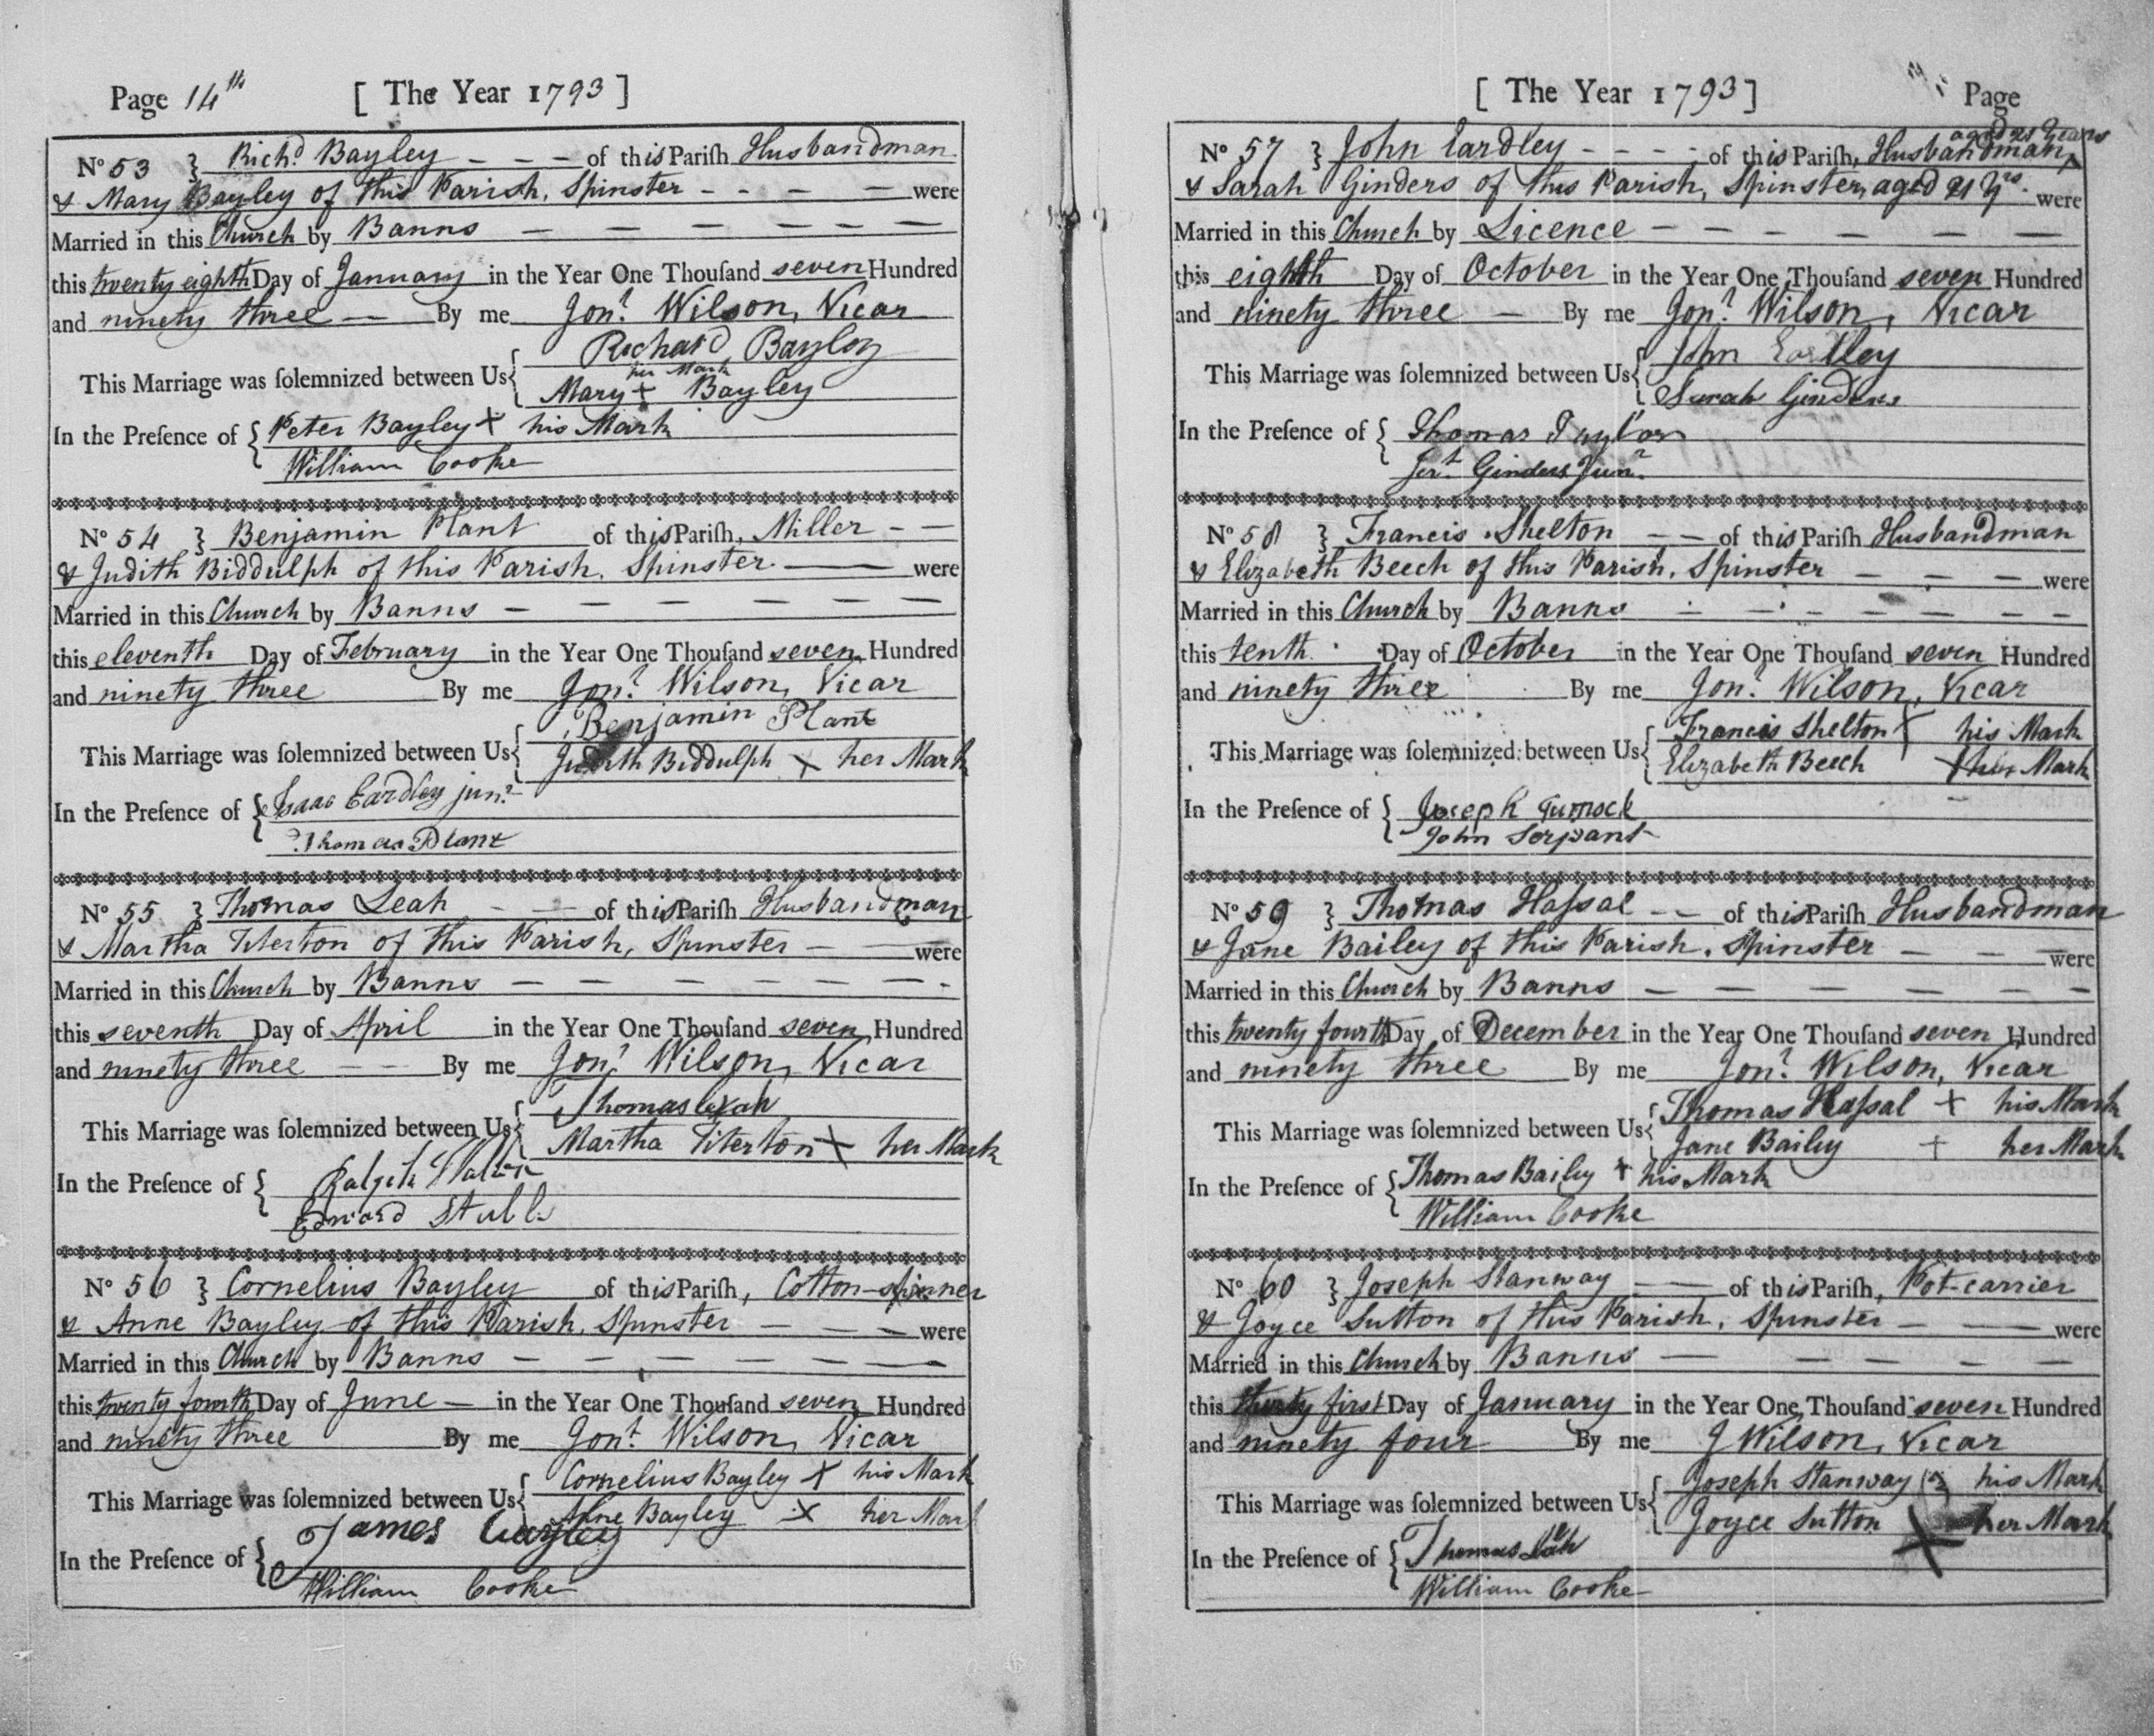 Page 14th [ The Year 1793 ]
No 53 } Richd Bayley - - - of this Parish Husbandman
& Mary Bayley of this Parish, Spinster - - - - were
Married in this Church by Banns - - - - - -
this twenty eighth Day of January in the Year One Thousand seven Hundred
and ninety three - By me Jonn Wilson, Vicar
This Marriage was solemnized between Us { Richard Bayley
her Mark
Mary + Bayley
In the Presence of { Peter Bayley + his Mark
William Cooke
No 54 } Benjamin Plant of this Parish, Miller - -
& Judith Biddulph of this Parish, Spinster - - were
Married in this Church by Banns - - - - - -
this eleventh Day of February in the Year One Thousand seven Hundred
and ninety three By me Jonn Wilson, Vicar
This Marriage was solemnized between Us { Benjamin Plant
Judith Biddulph × her Mark
In the Presence of { Isaac Eardley junr
Thomas Plant
No 55 } Thomas Leah - - of this Parish Husbandman
& Martha Titerton of this Parish, Spinster - - were
Married in this Church by Banns - - - - - - -
this seventh Day of April in the Year One Thousand seven Hundred
and ninety three - - By me Jonn Wilson, Vicar
This Marriage was solemnized between Us { Thomas Leah
Martha Titerton + her Mark
In the Presence of { Ralph
Edward Stubbs
No 56 } Cornelius Bayley of this Parish, Cotton-spinner
& Anne Bayley of this Parish, Spinster - - - were
Married in this Church by Banns - - - - - -
this twenty fourth Day of June - in the Year One Thousand seven Hundred
and ninety three By me Jonn Wilson, Vicar
This Marriage was solemnized between Us { Cornelius Bayley + his Mark
Anne Bayley × her Mark
In the Presence of { James
William Cooke
[ The Year 1793 ] Page
aged 21 Years
No 57 } John Eardley - - - - of this Parish, Husbandman,
& Sarah Ginders of this Parish, Spinster, aged 21 Yrs. were
Married in this Church by Licence - - - - - -
this eighth Day of October in the Year One Thousand seven Hundred
and ninety three - By me Jonn Wilson, Vicar
This Marriage was solemnized between Us { John Eardley
Sarah Ginders
In the Presence of { Thomas Taylor
Ginders Junr
No 58 } Francis Shelton - - of this Parish Husbandman
& Elizabeth Beech of this Parish, Spinster - - - were
Married in this Church by Banns - - - - - - -
this tenth Day of October in the Year One Thousand seven Hundred
and ninety three By me Jonn Wilson, Vicar
This Marriage was solemnized between Us { Francis Shelton + his Mark
Elizabeth Beech + her Mark
In the Presence of { Joseph
John
No 59 } Thomas Hassal - - of this Parish Husbandman
& Jane Bailey of this Parish, Spinster - - were
Married in this Church by Banns - - - - - - -
this twenty fourth Day of December in the Year One Thousand seven Hundred
and ninety three By me Jonn Wilson, Vicar
This Marriage was solemnized between Us { Thomas Hassal + his Mark
Jane Bailey + her Mark
In the Presence of { Thomas Bailey + his Mark
William Cooke
No 60 } Joseph Stanway - - of this Parish, Pot-carrier
& Joyce Sutton of this Parish, Spinster - - - were
Married in this Church by Banns - - - - -
this thirty first Day of January in the Year One Thousand seven Hundred
and ninety four By me J Wilson, Vicar
This Marriage was solemnized between Us { Joseph Stanway his Mark
Joyce Sutton × her Mark
In the Presence of { Thomas Leah
William Cooke